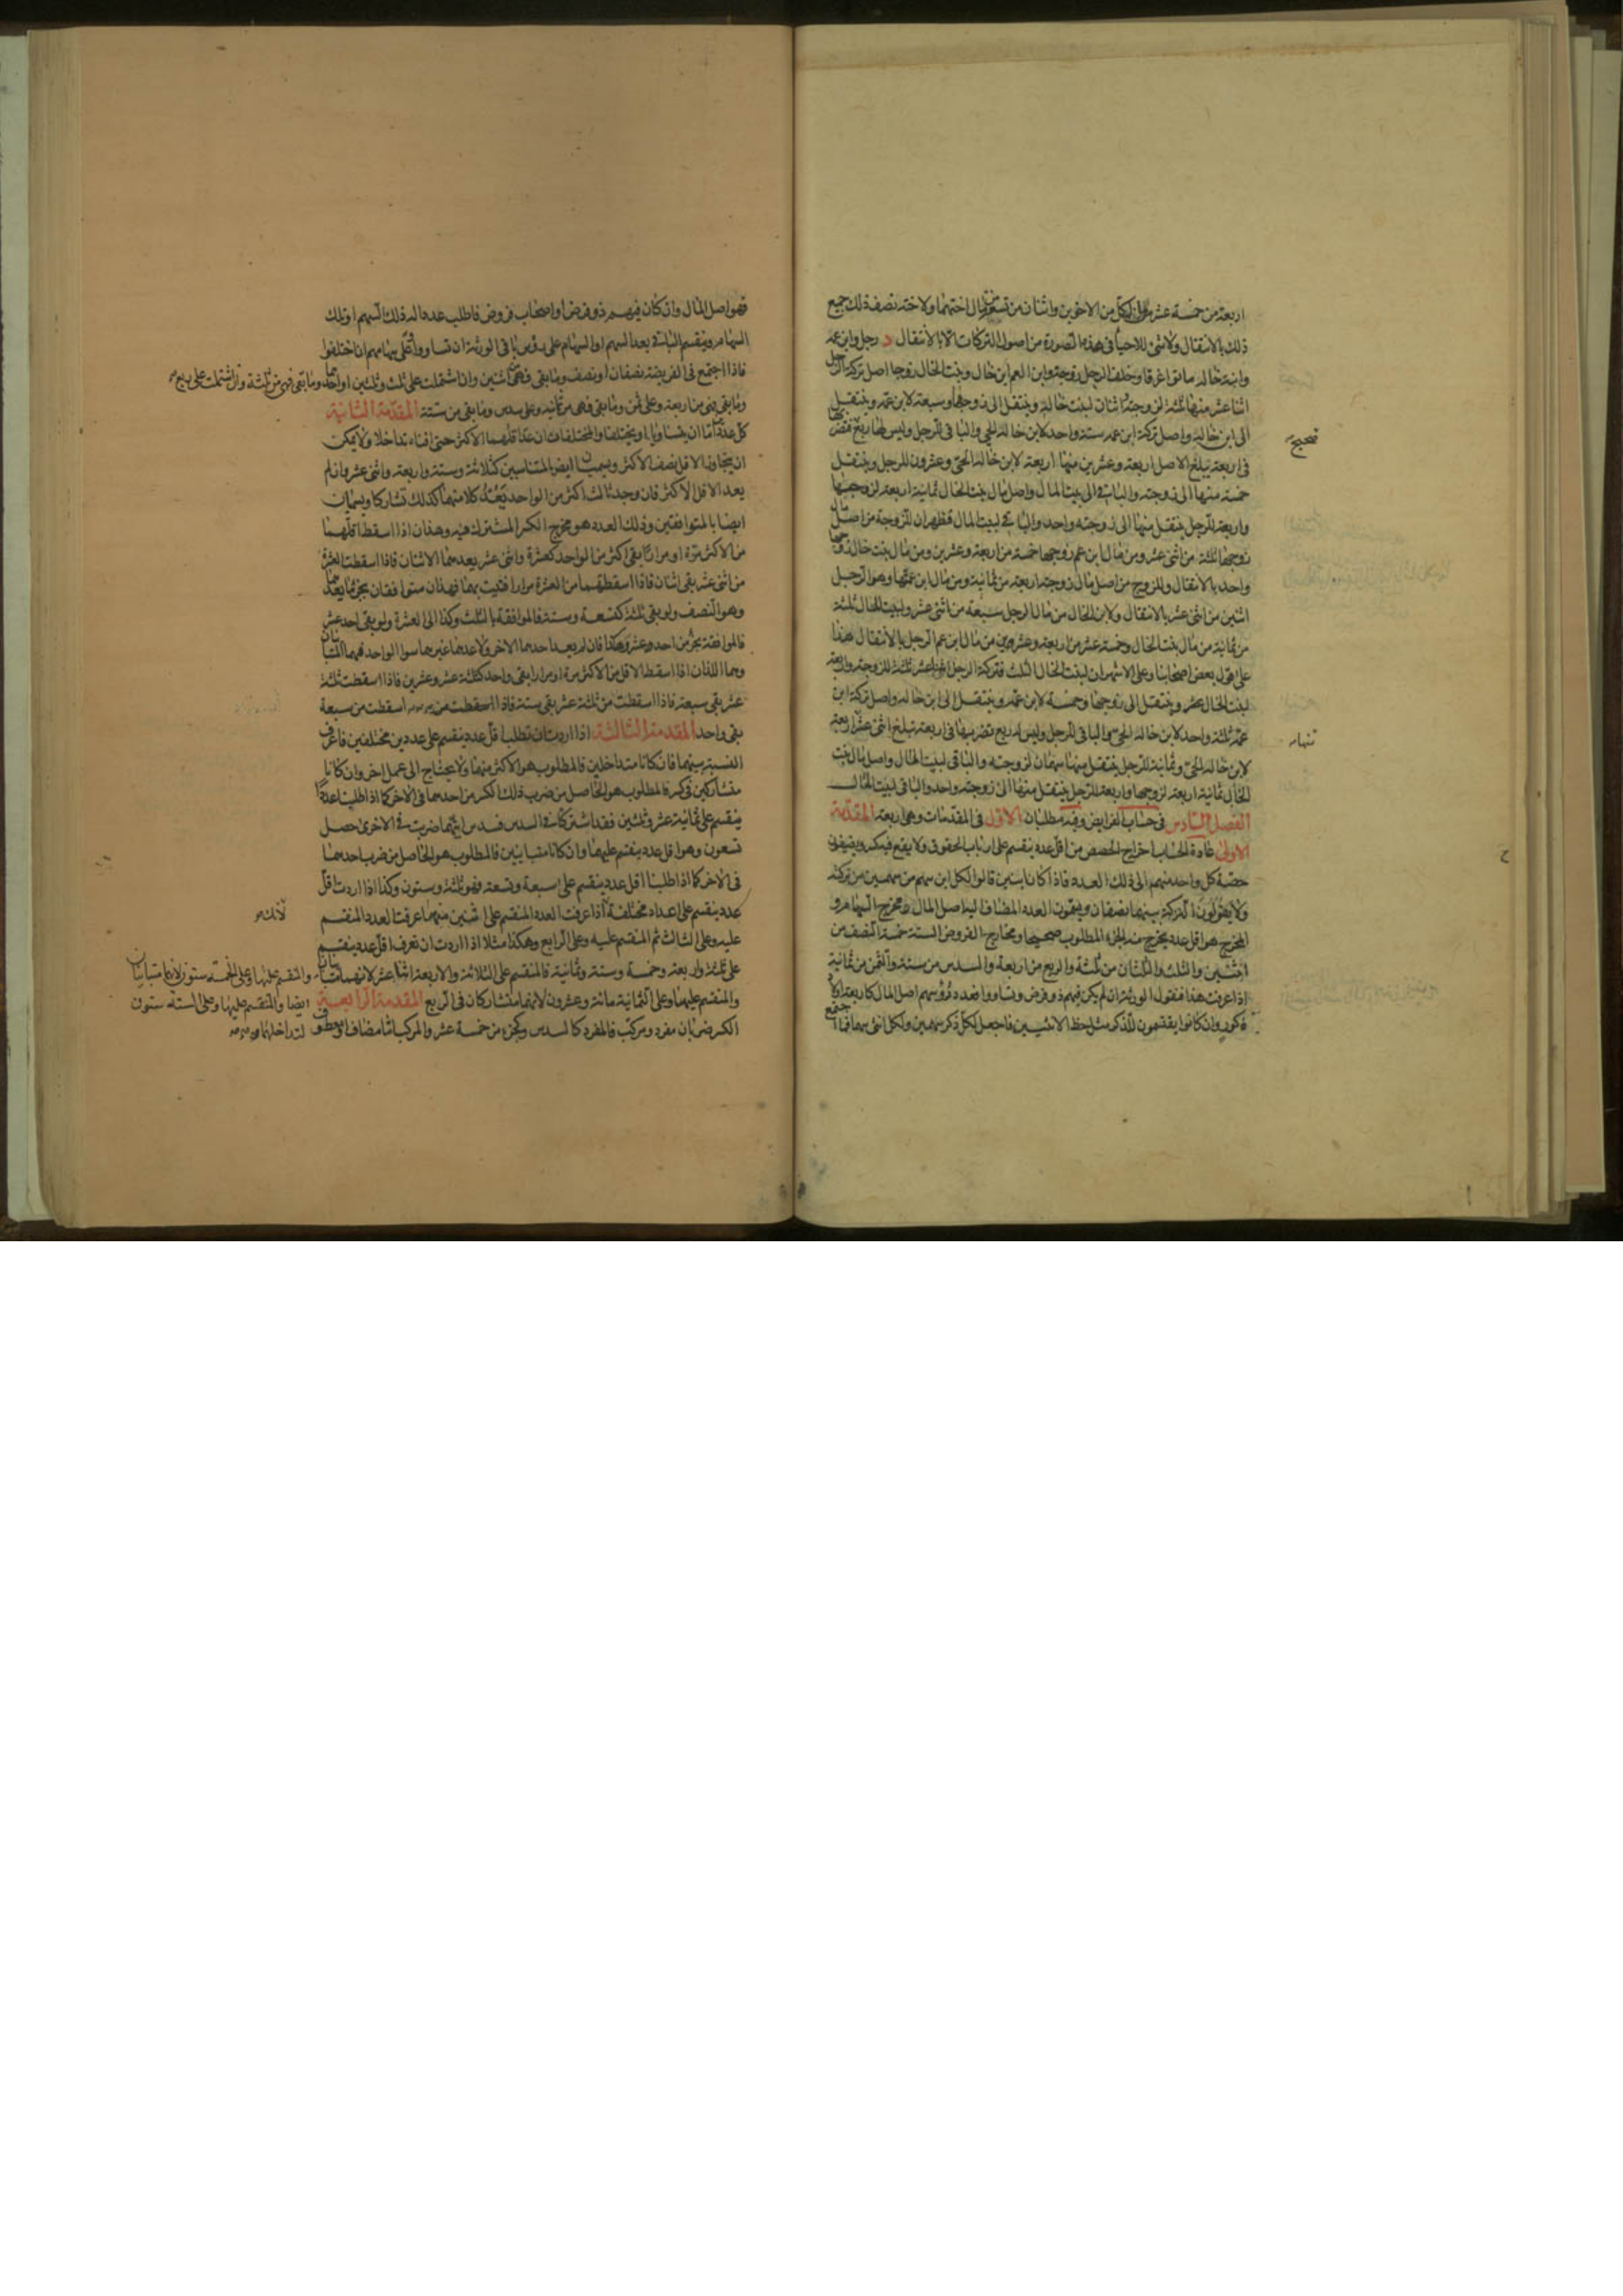 اربعة من خمسة عشر لكل من الاخوين واثنان من تسعة من مال اختهما ولاخته نصف ذلك جميع
ذلك بالانتقال ولا شئ للاحياء فى هذه الصورة من اصول التركات الا بالانتقال د رجل وابن عمه
وابنة خاله ماتوا غرقا وخلف الرجل زوجة وابن العم ابن خال وبنت الخال زوجا اصل تركة الرجل
اثنا عشر منها ثلثة لزوجته واثنان لبنت خاله وينتقل الى زوجها وسبعة لابن عمه وينتقل
الى ابن خاله واصل تركة ابن عمه ستة واحد لابن خاله الحى والباقى للرجل وليس لها ربع فتضربها
فى اربعة تبلغ الاصل اربعة وعشرين منها اربعة لابن خاله الحى وعشرون للرجل وينتقل
خمسة منها الى زوجته والباقى الى بيت المال واصل مال بنت الخال ثمانية اربعة لزوجها
واربعة للرجل ينتقل منها الى زوجته واحد والباقى لبيت المال فظهر ان للزوجة من اصل مال
زوجها ثلثة من اثنى عشر ومن مال ابن عم زوجها خمسة من اربعة وعشرين ومن مال بنت خال زوجها
واحد بالانتقال وللزوج من اصل مال زوجته اربعة من ثمانية ومن مال ابن عمتها وهو الرجل
اثنين من اثنى عشر بالانتقال ولابن الخال من مال الرجل سبعة من اثنى عشر ولبيت المال ثلثة
من ثمانية من مال بنت الخال وخمسة عشر من اربعة وعشرين من مال ابن عم الرجل بالانتقال هذا
على قول بعض اصحابنا وعلى الاشهر ان لبنت الخال الثلث فتركة الرجل اثنا عشر ثلثة للزوجة واربعة
لبنت الخال وينتقل الى زوجها وخمسة لابن عمه وينتقل الى ابن خاله واصل تركة ابن
عمه ثلثة واحد لابن خاله الحى والباقى للرجل وليس له ربع تضربها فى اربعة تبلغ اثنى عشر اربعة
لابن خاله الحى وثمانية للرجل ينتقل منها سهمان لزوجته والباقى لبيت المال واصل مال بنت
الخال ثمانية اربعة لزوجها واربعة للرجل ينتقل منها الى زوجته واحد والباقى لبيت المال
الفصل السادس فى حساب الفرايض وفيه مطلبان الاول فى المقدمات وهى اربعة المقدمة
الاولى عادة الحساب اخراج الحصص من اقل عدد ينقسم على ارباب الحقوق ولا يقع فيه كسر ويضيفون
حصة كل واحد منهم الى ذلك العدد فاذا كان ابنين قالوا لكل ابن سهم من سهمين من تركته
ولا يقولون التركة بينهما نصفان ويسمون العدد المضاف اليه اصل المال ومخرج السهام و
المخرج هو اقل عدد يخرج منه الجزء المطلوب صحيحا ومخارج الفروض الستة خمسة النصف من
اثنين والثلث والثلثان من ثلثة والربع من اربعة والسدس من ستة والثمن من ثمانية
اذا عرفت هذا فنقول الورثة ان لم يكن فيهم ذو فرض وتساووا فعدد رؤسهم اصل المال كاربعة اولاد
ذكور وان كانوا يقتسمون للذكر مثل حظ الانثيين فاجعل لكل ذكر سهمين ولكل انثى سهما فما اجتمع
صحيح
فهو اصل المال وان كان فيهم ذو فرض او اصحاب فروض فاطلب عددا له ذلك السهم او تلك
السهام وينقسم الباقى بعد السهم او السهام على رؤس باقى الورثة ان تساووا وعلى سهامهم ان اختلفوا
فاذا اجتمع فى الفريضة نصفان او نصف وما بقى فهى من اثنين وان اشتملت على ثلث وثلثين او احدهما وما بقى فهى من ثلثة وان اشتملت على ربع
وما بقى فهى من اربعة وعلى ثمن وما بقى فهى من ثمانية وعلى سدس وما بقى من ستة المقدمة الثانية
كل عددين اما ان يتساويا او يختلفا والمختلفان ان عد اقلهما الاكثر حتى افناه تداخلا ولا يمكن
ان يتجاوز الاقل نصف الاكثر ويسميان ايضا بالمتناسبين كثلاثة وستة واربعة واثنى عشر وان لم
يعد الاقل الاكثر فان وجد ثالث اكثر من الواحد يعد كلا منهما كذلك تشاركا ويسميان
ايضا بالمتوافقين وذلك العدد هو مخرج الكسر المشترك فيه وهذان اذا اسقط اقلهما
من الاكثر مرة او مرارا بقى اكثر من الواحد كعشرة واثنى عشر يعدهما الاثنان فاذا اسقطت العشرة
من اثنى عشر بقى اثنان فاذا اسقطتهما من العشرة مرارا فنيت بهما فهذان متوافقان بجزء ما يعدهما
وهو النصف ولو بقى ثلثة كتسعة وستة فالموافقة بالثلث وكذا الى العشرة ولو بقى احد عشر
فالموافقة بجزء من احد عشر وهكذا فان لم يعد احدهما الاخر ولا عدهما غيرهما سوا الواحد فهما المتباينان
وهما اللذان اذا اسقط الاقل من الاكثر مرة او مرارا بقى واحد كثلثة عشر وعشرين فاذا اسقطت ثلثة
عشر بقى سبعة فاذا اسقطت من ثلثة عشر بقى ستة فاذا اسقطت من اسقطت من سبعة
بقى واحد المقدمة الثالثة اذا اردت ان تطلب اقل عدد ينقسم على عددين مختلفين فاعرف
النسبة بينهما فان كانا متداخلين فالمطلوب هو الاكثر منهما ولا يحتاج الى عمل اخر وان كانا
متشاركين فى كسر فالمطلوب هو الحاصل من ضرب ذلك الكسر من احدهما فى الاخر كما اذا طلبنا عددا
ينقسم على ثمانية عشر وثلثين فقد اشتركا فى السدس فسدس ايهما ضربت فى الاخرى حصل
تسعون وهو اقل عدد ينقسم عليهما وان كانا متباينين فالمطلوب هو الحاصل من ضرب احدهما
فى الاخر كما اذا طلبنا اقل عدد ينقسم على سبعة وتسعة فهو ثلثة وستون وكذا اذا اردت اقل
عدد ينقسم على اعداد مختلفة اذا عرفت العدد المنقسم على اثنين منهما عرفت العدد المنقسم
لانك
عليه وعلى الثالث ثم المنقسم عليه وعلى الرابع وهكذا مثلا اذا اردت ان تعرف اقل عدد ينقسم
على ثلثة واربعة وخمسة وستة وثمانية فالمنقسم على الثلاثة والاربعة اثنا عشر لانهما متباينان والمنقسم عليها وعلى الخمسة ستون لانهما متباينان
والمنقسم عليها وعلى الثمانية مائة وعشرون لانهما متشاركان فى الربع المقدمة الرابعة ايضا والمنقسم عليها وعلى الستة ستون
الكسر ضربان مفرد ومركب فالمفرد كالسدس وكجزء من خمسة عشر والمركب اما مضاف او معطوف لتداخلهما